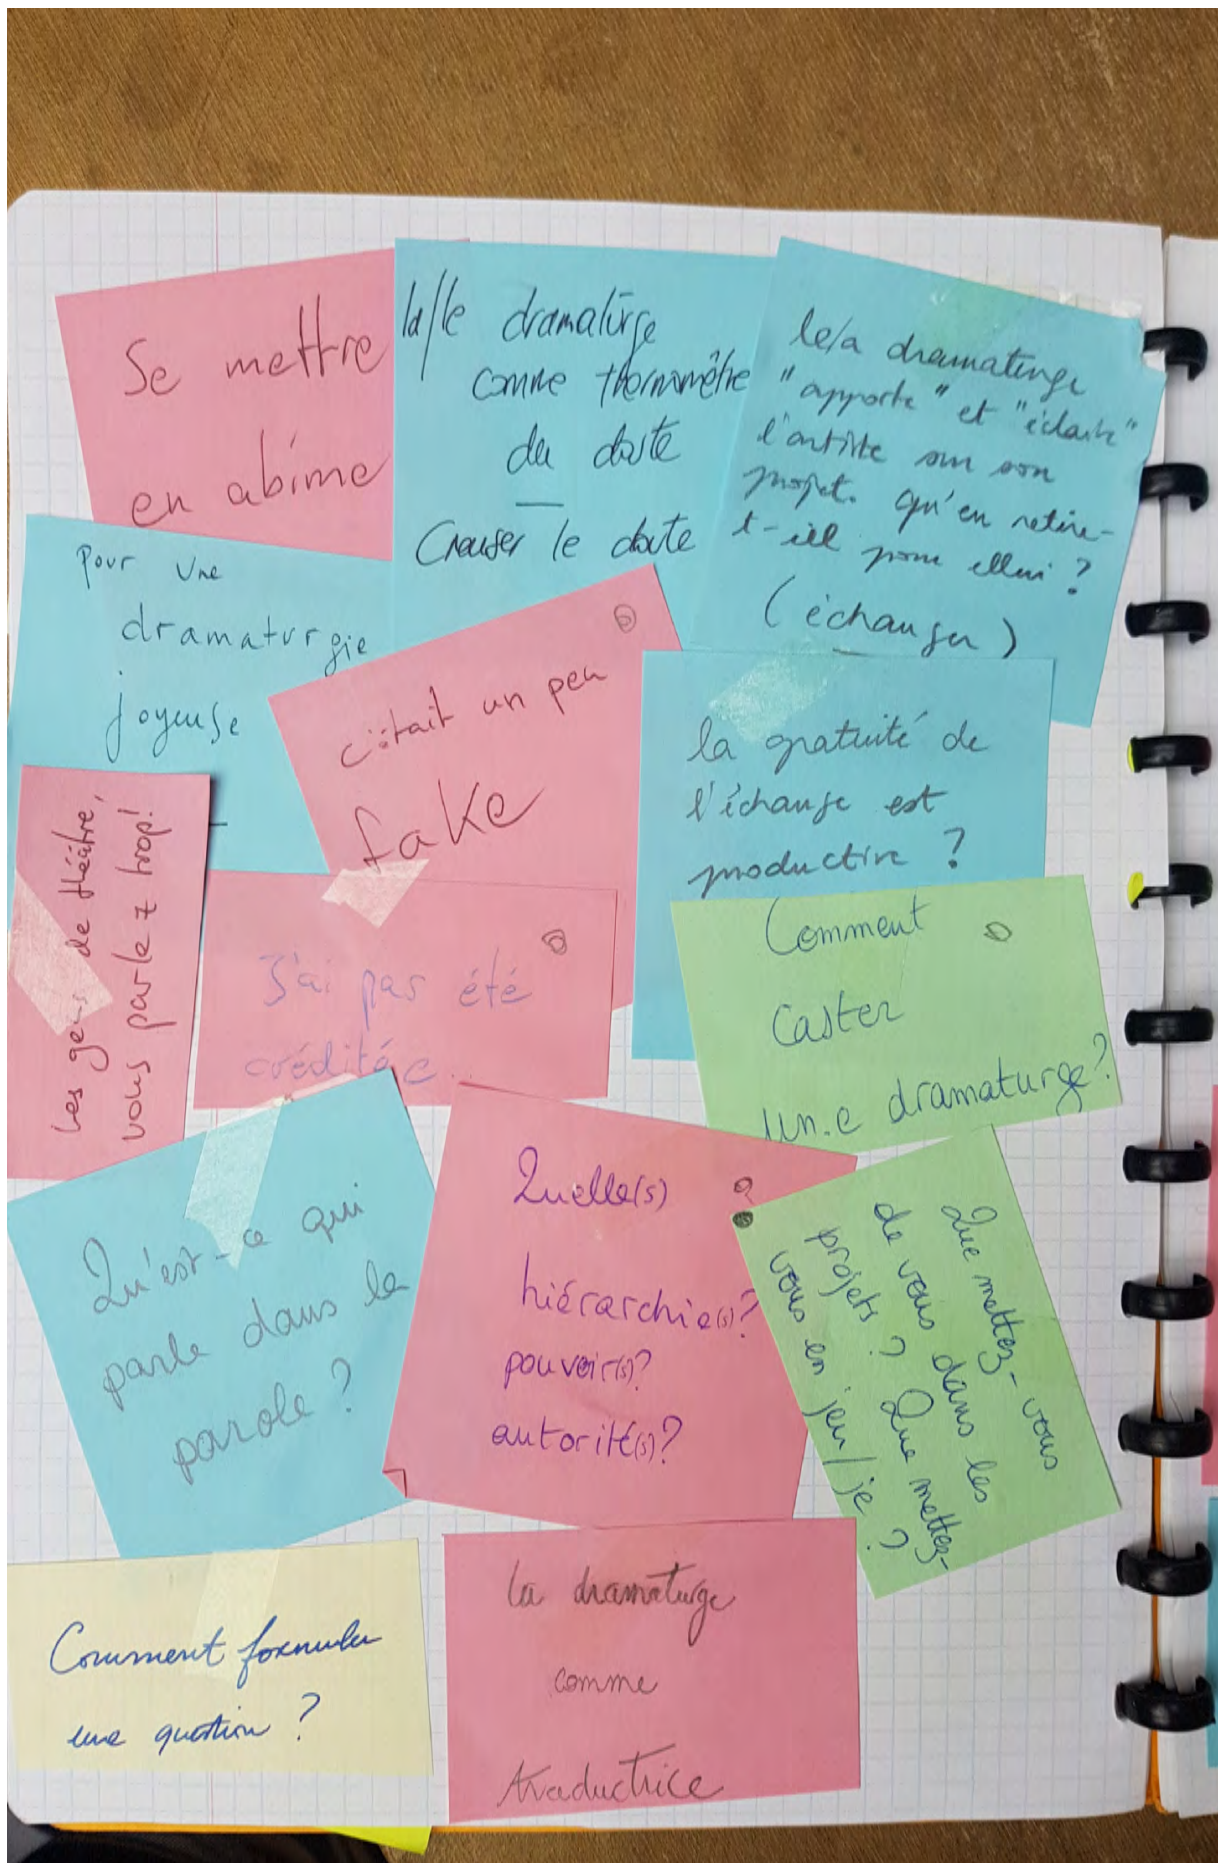 Se mettre
en abîme
la/le dramaturge
comme thermomètre
du doute
—
Creuser le doute
le/a dramaturge
"apporte" et "éclaire"
l'artiste sur son
projet. qu'en retire-
t-iel pour ellui ?
(échanger)
pour une
dramaturgie
joyeuse
c'était un peu
fake
la gratuité de
l'échange est
productive ?
Les gens de théâtre,
vous parlez trop!
J'ai pas été
crédité.e...
Comment
caster
un.e dramaturge?
Qu'est-ce qui
parle dans la
parole ?
Quelle(s)
hiérarchie(s)?
pouvoir(s)?
autorité(s)?
Que mettez-vous
de vous dans les
projets ? Que mettez-
vous en jeu/je ?
Comment formuler
une question ?
la dramaturge
comme
traductrice